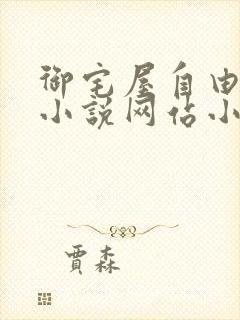 御宅屋自由
小说网站小
賈森